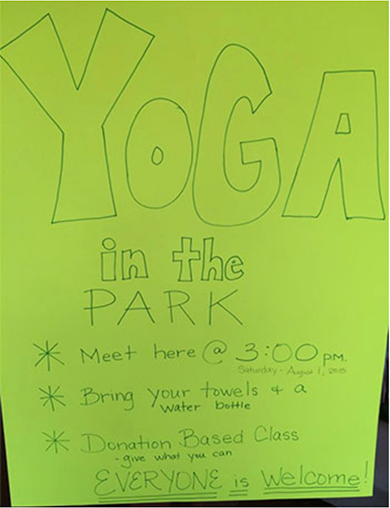 YOGA
in the
PARK
* Meet here @ 3:00 P.M.
Saturday - August 1, 2015
* Bring your towels & a
water bottle
* Donation Based Class
- give what you can
EVERYONE is Welcome!